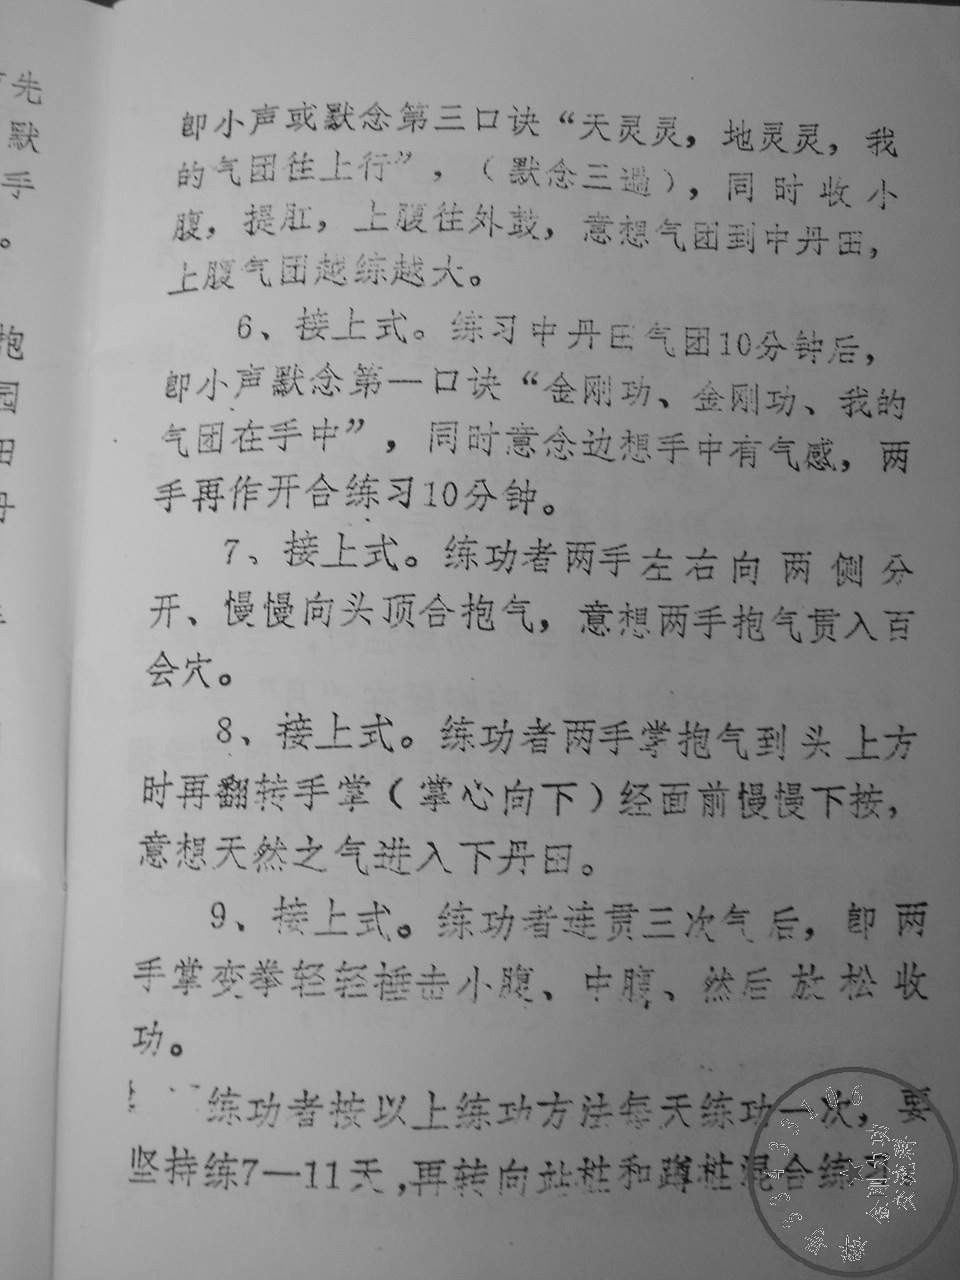 先
默
手
。
抱
园
田
丹
即小声或默念第三口诀“天灵灵，地灵灵，我
的气团往上行”，（默念三遍），同时收小
腹，提肛，上腹往外鼓，意想气团到中丹田，
上腹气团越练越大。
6、接上式。练习中丹田气团10分钟后，
即小声默念第一口诀“金刚功、金刚功、我的
气团在手中”，同时意念边想手中有气感，两
手再作开合练习10分钟。
7、接上式。练功者两手左右向两侧分
开、慢慢向头顶合抱气，意想两手抱气贯入百
会穴。
8、接上式。练功者两手掌抱气到头上方
时再翻转手掌（掌心向下）经面前慢慢下按，
意想天然之气进入下丹田。
9、接上式。练功者连贯三次气后，即两
手掌变拳轻轻捶击小腹、中腹、然后放松收
功。
练功者按以上练功方法每天练功一次，要
坚持练7—11天，再转向站桩和蹲桩混合练习。